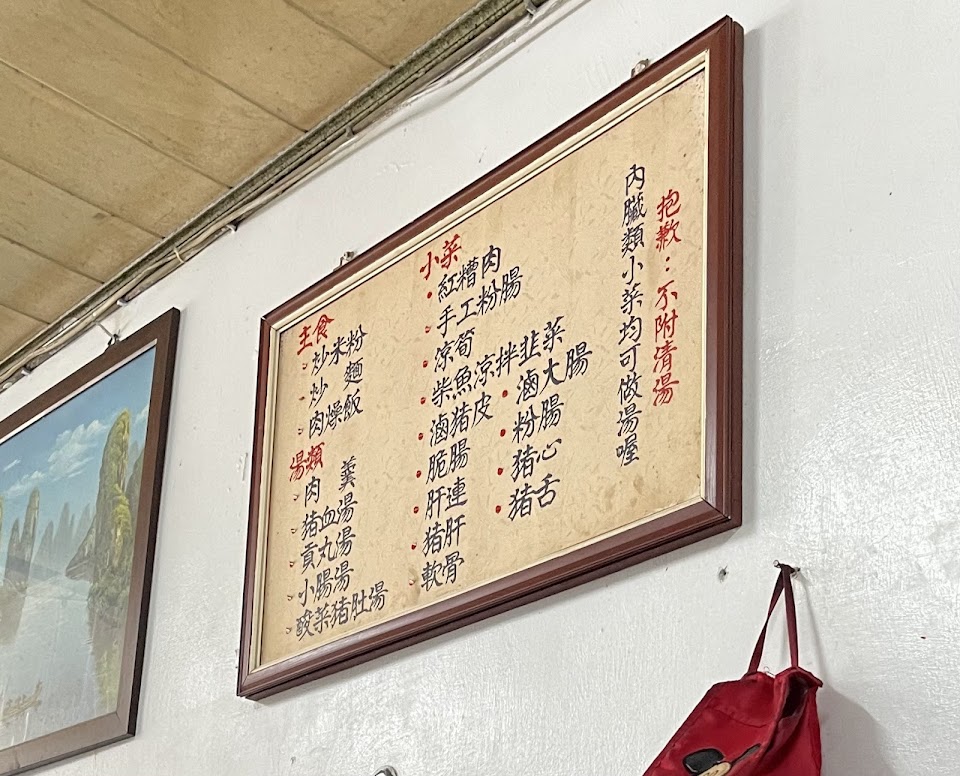 主食
炒米粉
炒 麵
肉燥飯
湯類
肉 羹
豬血湯
貢丸湯
小腸湯
酸菜豬肚湯
小菜
紅糟肉
手工粉腸
涼筍
柴魚涼拌韭菜
滷豬皮
脆腸
肝連
豬肝
軟骨
滷大腸
粉腸
豬心
豬舌
內臟類小菜均可做湯喔
抱歉：不附清湯